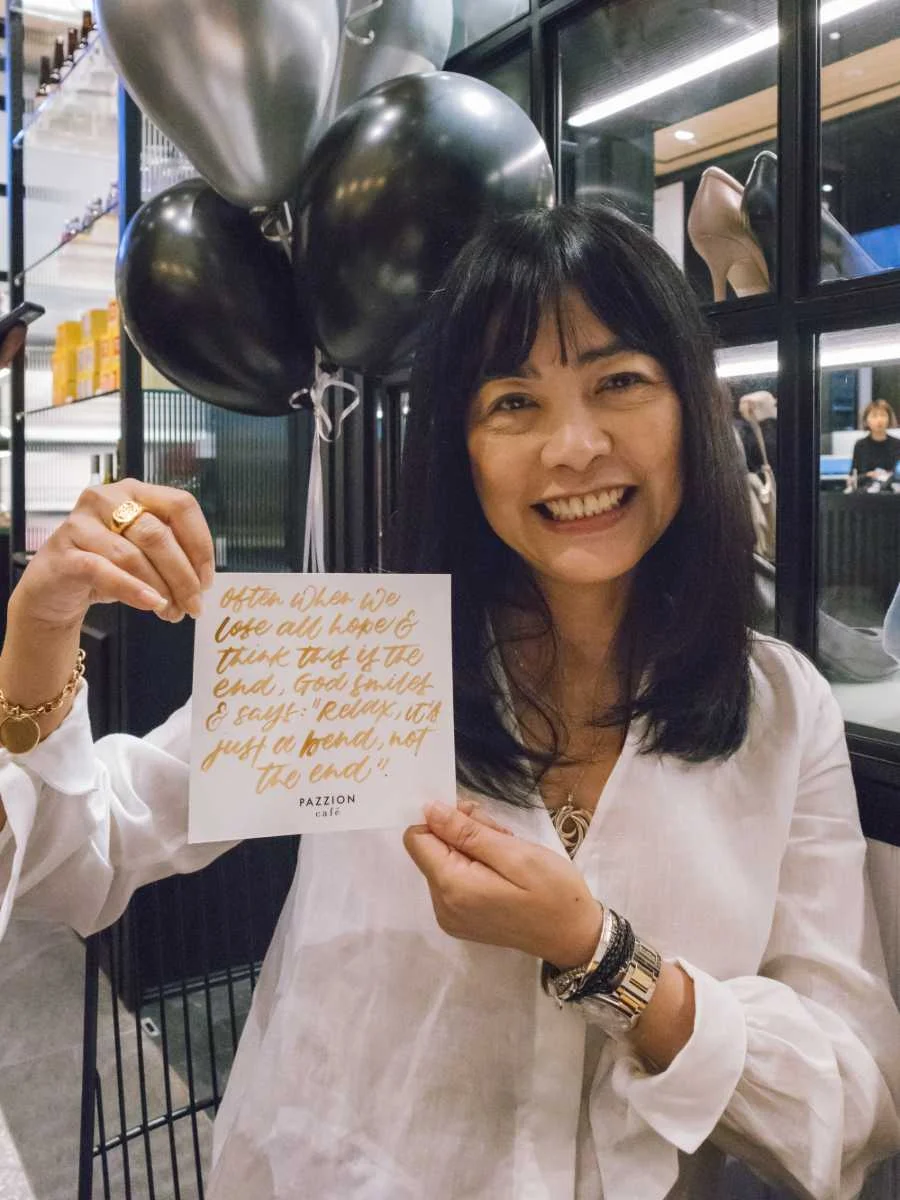 often when we
lose all hope &
think this is the
end, God smiles
& says: "Relax, it's
just a bend, not
the end".
PAZZION
café